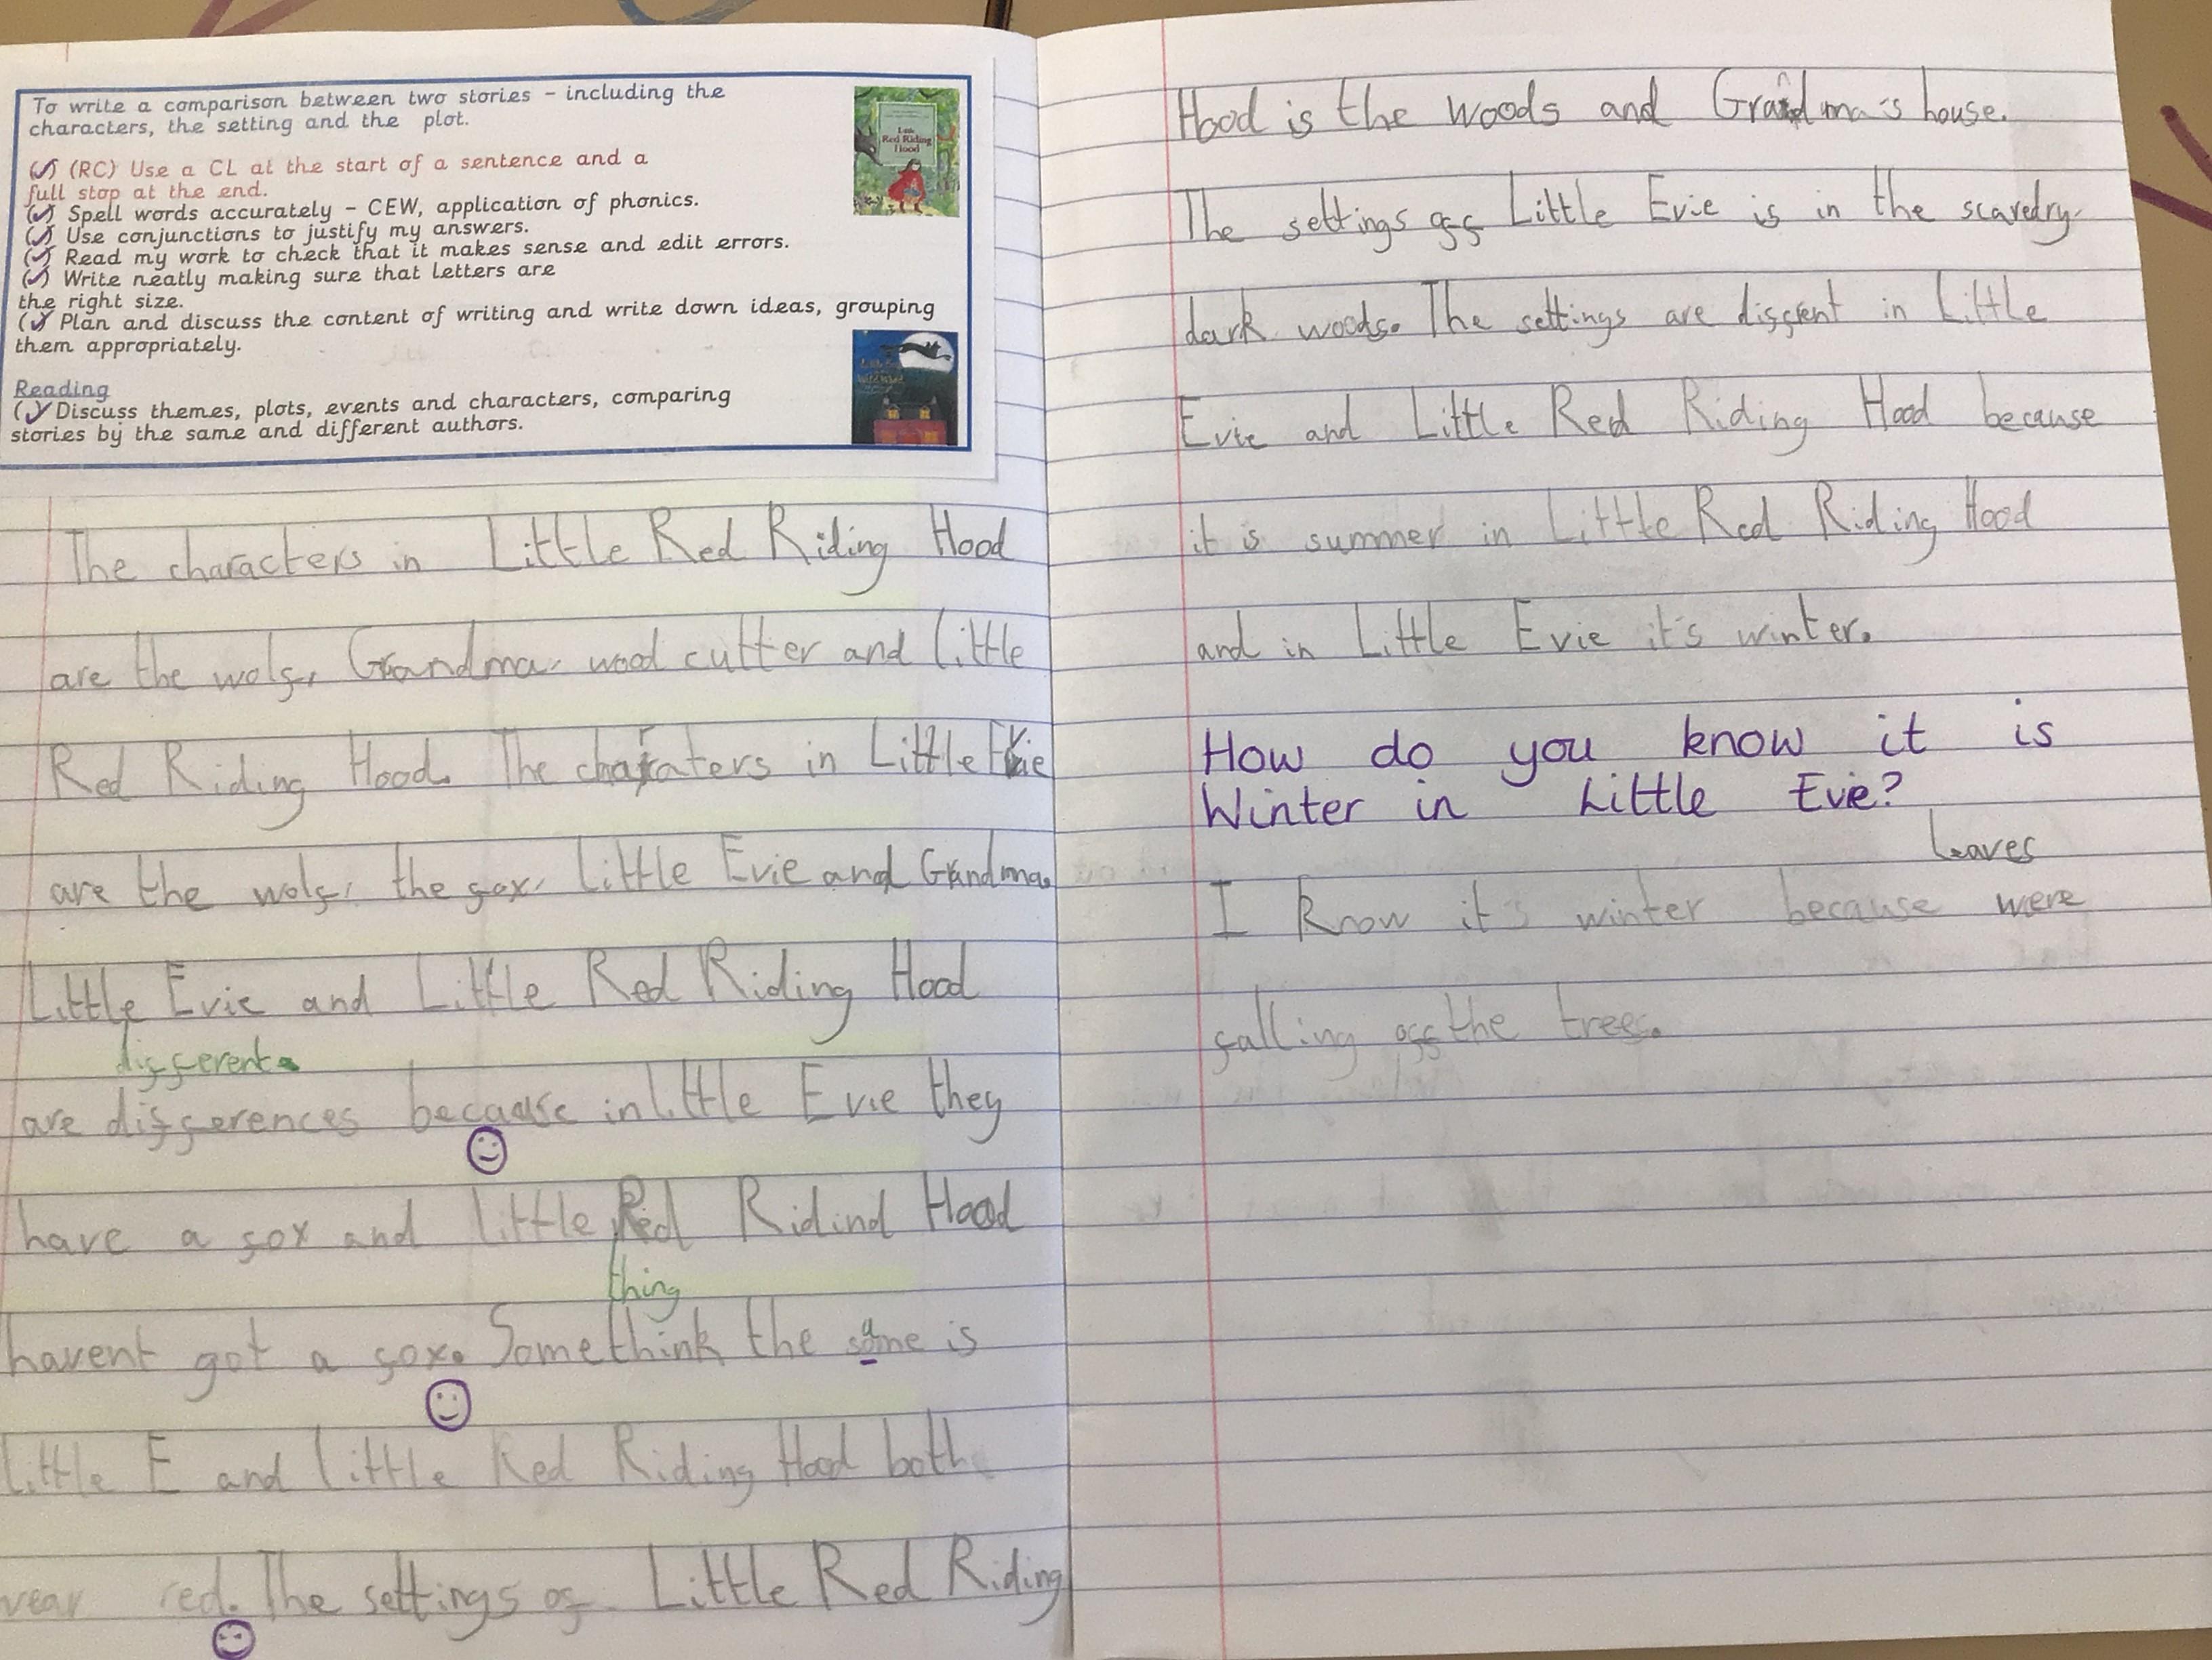 To write a comparison between two stories - including the
characters, the setting and the plot.
(✓) (RC) Use a CL at the start of a sentence and a
full stop at the end.
(✓) Spell words accurately – CEW, application of phonics.
(✓) Use conjunctions to justify my answers.
(✓) Read my work to check that it makes sense and edit errors.
(✓) Write neatly making sure that letters are
the right size.
(✓) Plan and discuss the content of writing and write down ideas, grouping
them appropriately.
Reading
(✓) Discuss themes, plots, events and characters, comparing
stories by the same and different authors.
Little
Red Riding
Hood
The characters in Little Red Riding Hood
are the wolf, Grandma, wood cutter and little
Red Riding Hood. The charaters in Little Evie
are the wolf, the fox, Little Evie and Grandma.
Little Evie and Little Red Riding Hood
different.
are differences because in little Evie they
have a fox and little Red Ridind Hood
thing
havent got a fox. Somethink the same is
Little E and little Red Riding Hood both
wear red. The settings of Little Red Riding
Hood is the woods and Grandma's house.
The settings off Little Evie is in the scaredry.
dark woods. The settings are diffrent in Little
Evie and Little Red Riding Hood because
it is summer in Little Red Riding Hood
and in Little Evie it's winter.
How do you know it is
Winter in Little Evie?
leaves
I know it's winter because were
falling off the trees.